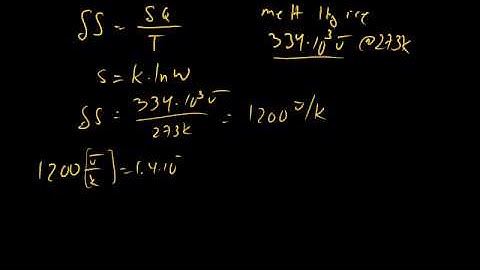 δS = δQ / T
melt 1kg ice
334·10³ J @273K
S = k·lnW
δS = 334·10³ J / 273K = 1200 J/K
1200 [J/K] = 1.4·10